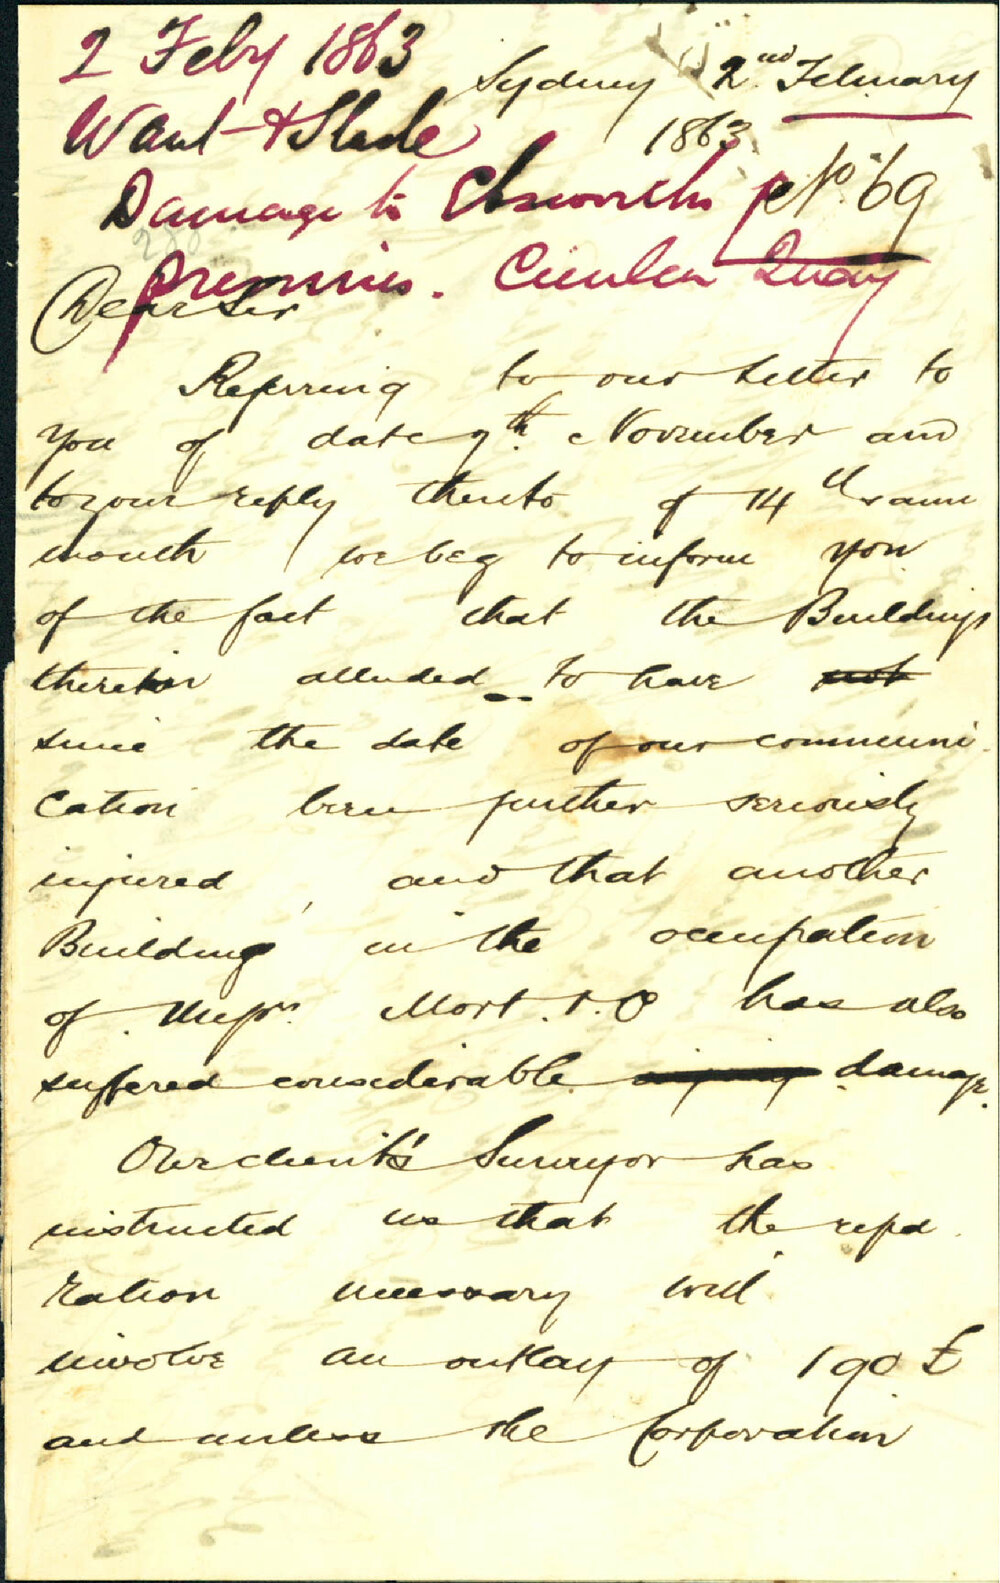 2 Feby 1863
Sydney 2nd. February
Want & Slade
1863
Damage to Ebsworth's No. 69
premises. Circular Quay
Dear Sir
Referring to our letter to
you of date 9th. November and
to your reply thereto of 14th same
month we beg to inform you
of the fact that the Buildings
therein alluded to have not
since the date of our communi
cation been further seriously
injured, and that another
Building in the occupation
of Messrs. Mort & Co has also
suffered considerable injury damage.
Our client's Surveyor has
instructed us that the repa
ration necessary will
involve an outlay of 190£
and unless the Corporation